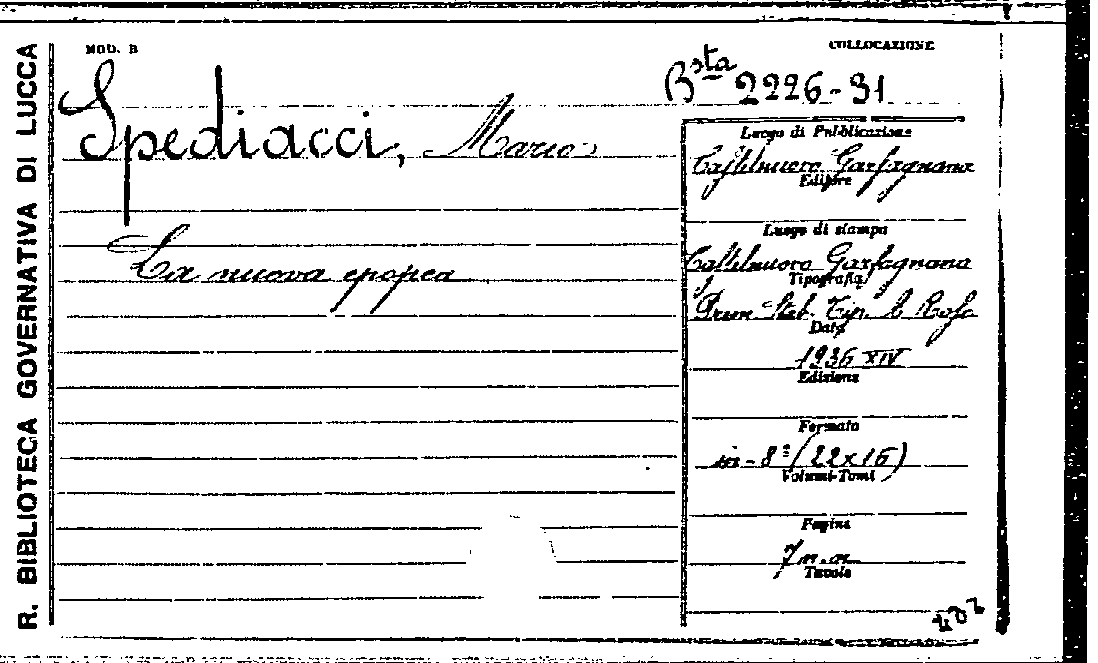 R. BIBLIOTECA GOVERNATIVA DI LUCCA
MOD. B
COLLOCAZIONE
Bsta 2226-31
Spediacci, Mario
La nuova epopea
Luogo di Pubblicazione
Castelnuovo Garfagnana
Editore
Luogo di stampa
Castelnuovo Garfagnana
Tipografia
Prem. Stab. Tip.
Data
1936 XIV
Edizione
Formato
in-8° (22x16)
Volumi-Tomi
Pagine
7 n.n.
Tavole